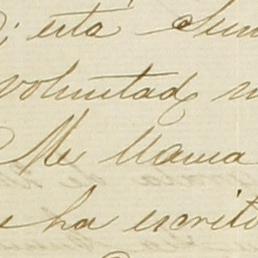 esta
voluntad
Me llama
ha escrito